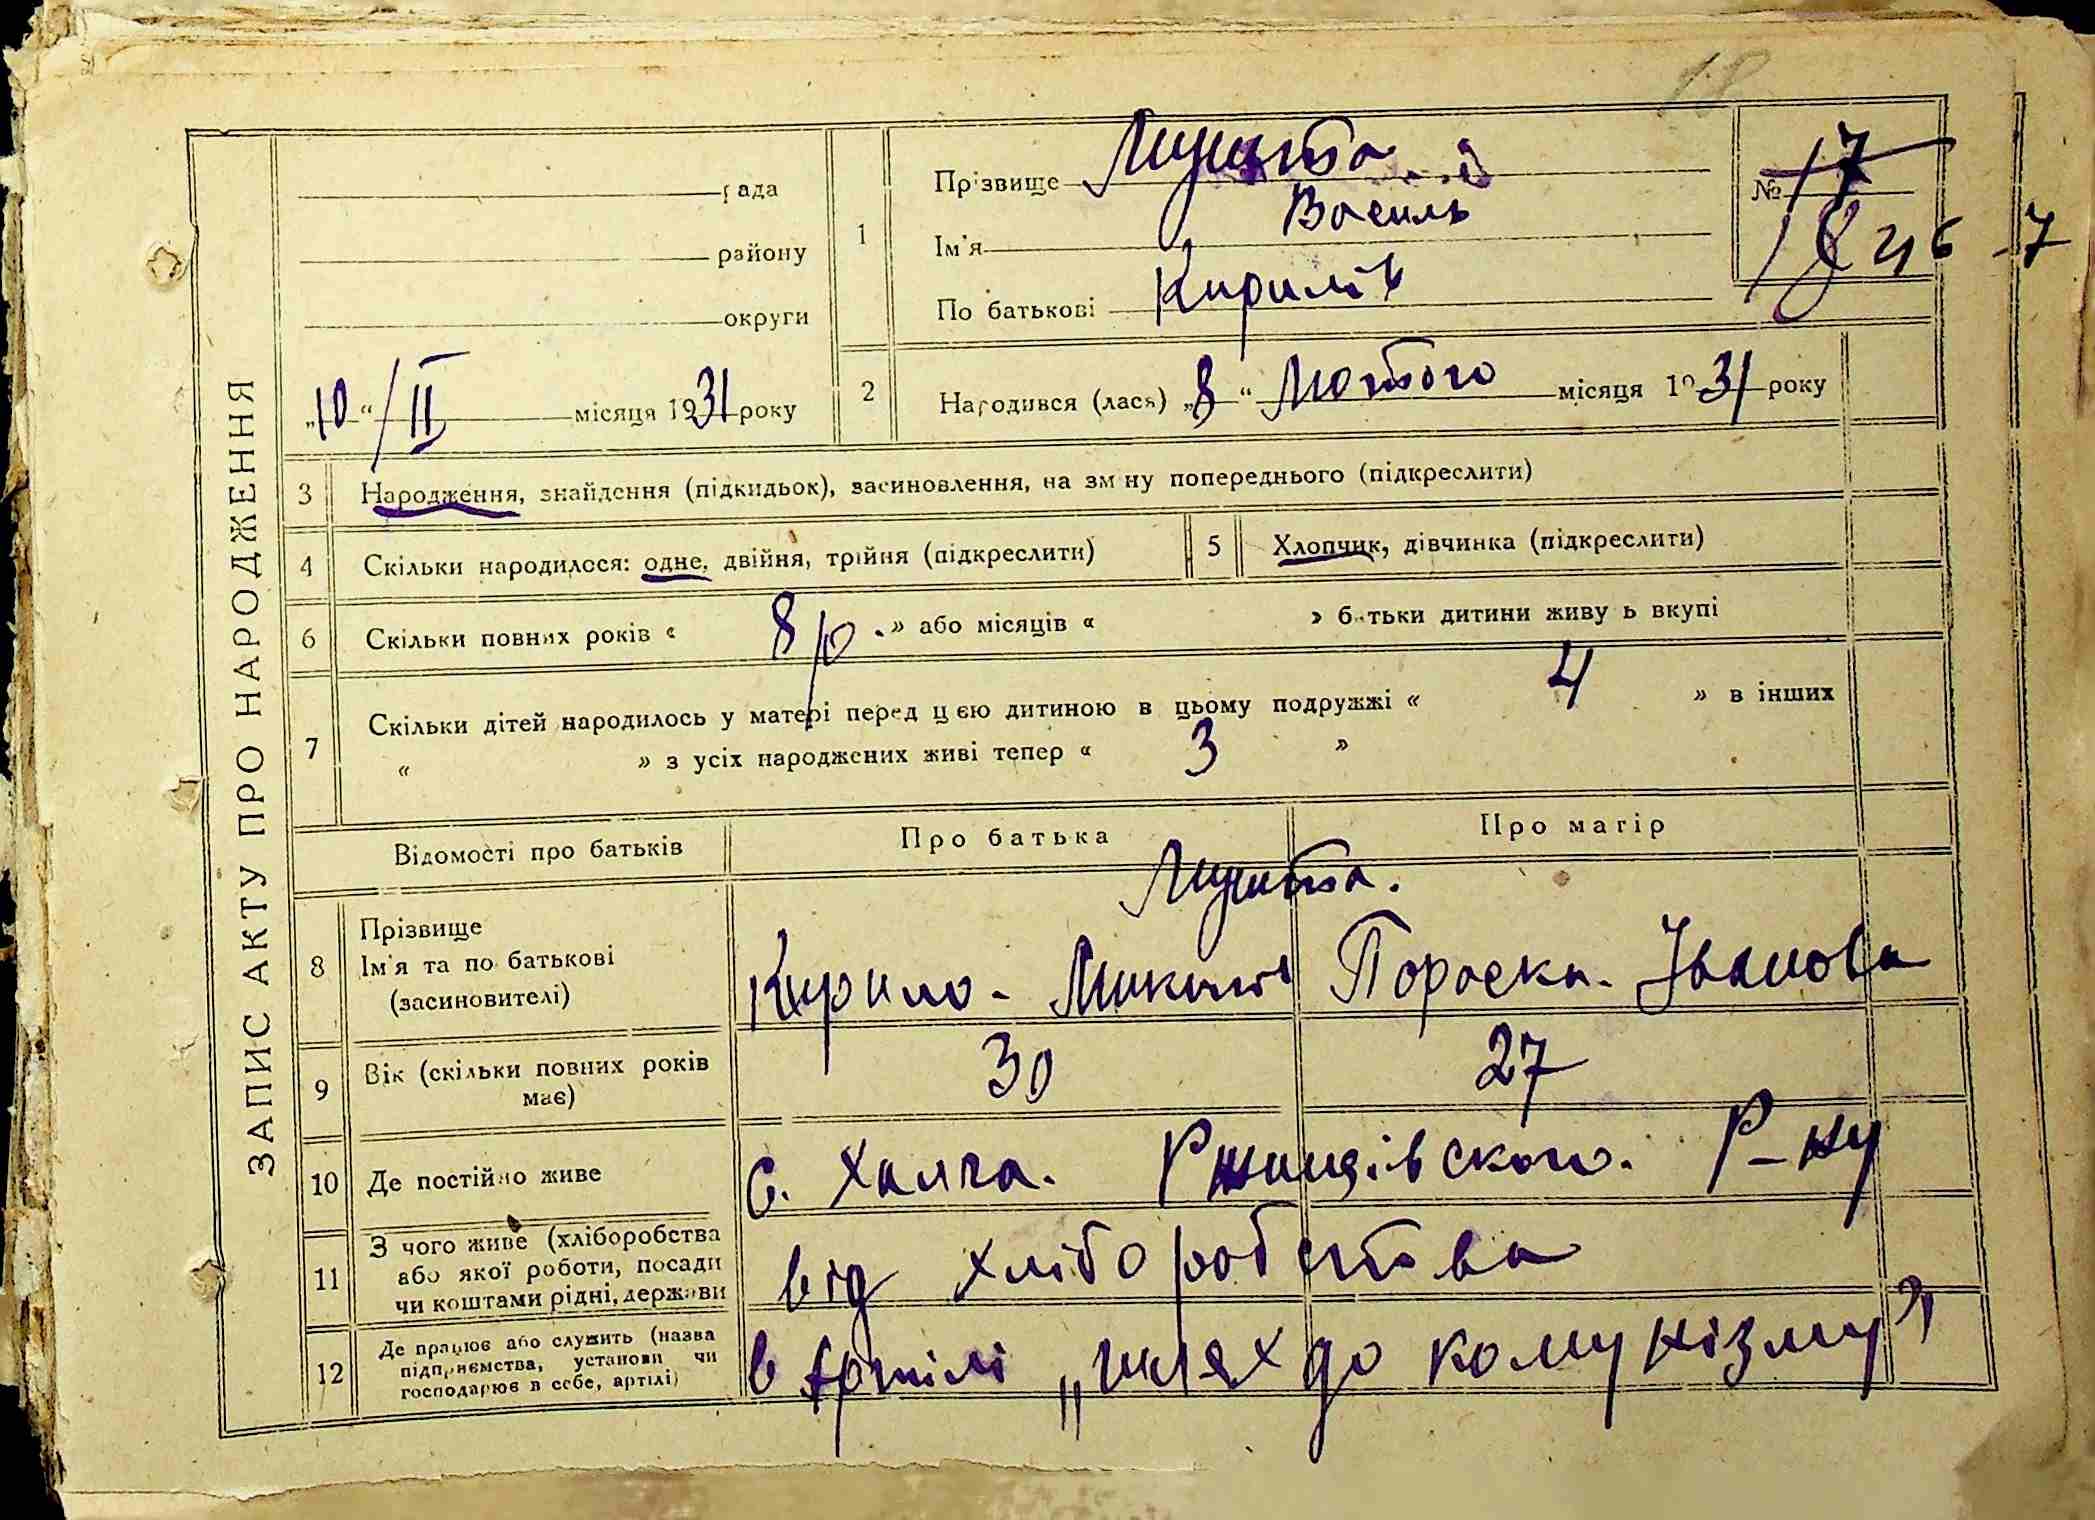 18
ЗАПИС АКТУ ПРО НАРОДЖЕННЯ
рада
району
округи
„10“/II місяця 1931 року
1
Прізвище
Ім'я Василь
По батькові Кирилів
№ 17
18
2 Народився (лася) „8“ Лютого місяця 1931 року
3 Народження, знайдення (підкидьок), засиновлення, на зміну попереднього (підкреслити)
4 Скільки народилося: одне, двійня, трійня (підкреслити)
5 Хлопчик, дівчинка (підкреслити)
6 Скільки повних років « 8 р. » або місяців « » батьки дитини живуть вкупі
7 Скільки дітей народилось у матері перед цією дитиною в цьому подружжі « 4 » в інших
« » з усіх народжених живі тепер « 3 »
Відомості про батьків Про батька Про матір
8 Прізвище
Ім'я та по батькові
(засиновителі)
Кирило - Миколів Пороска. Іванова
9 Вік (скільки повних років має) 30 27
10 Де постійно живе с. Халча. Ржищівського. Р-ну
11 З чого живе (хліборобства
або якої роботи, посади
чи коштами рідні, держави
від хліборобства
12 Де працює або служить (назва
підприємства, установи чи
господарює в себе, артілі)
в Артілі „шлях до комунізму”